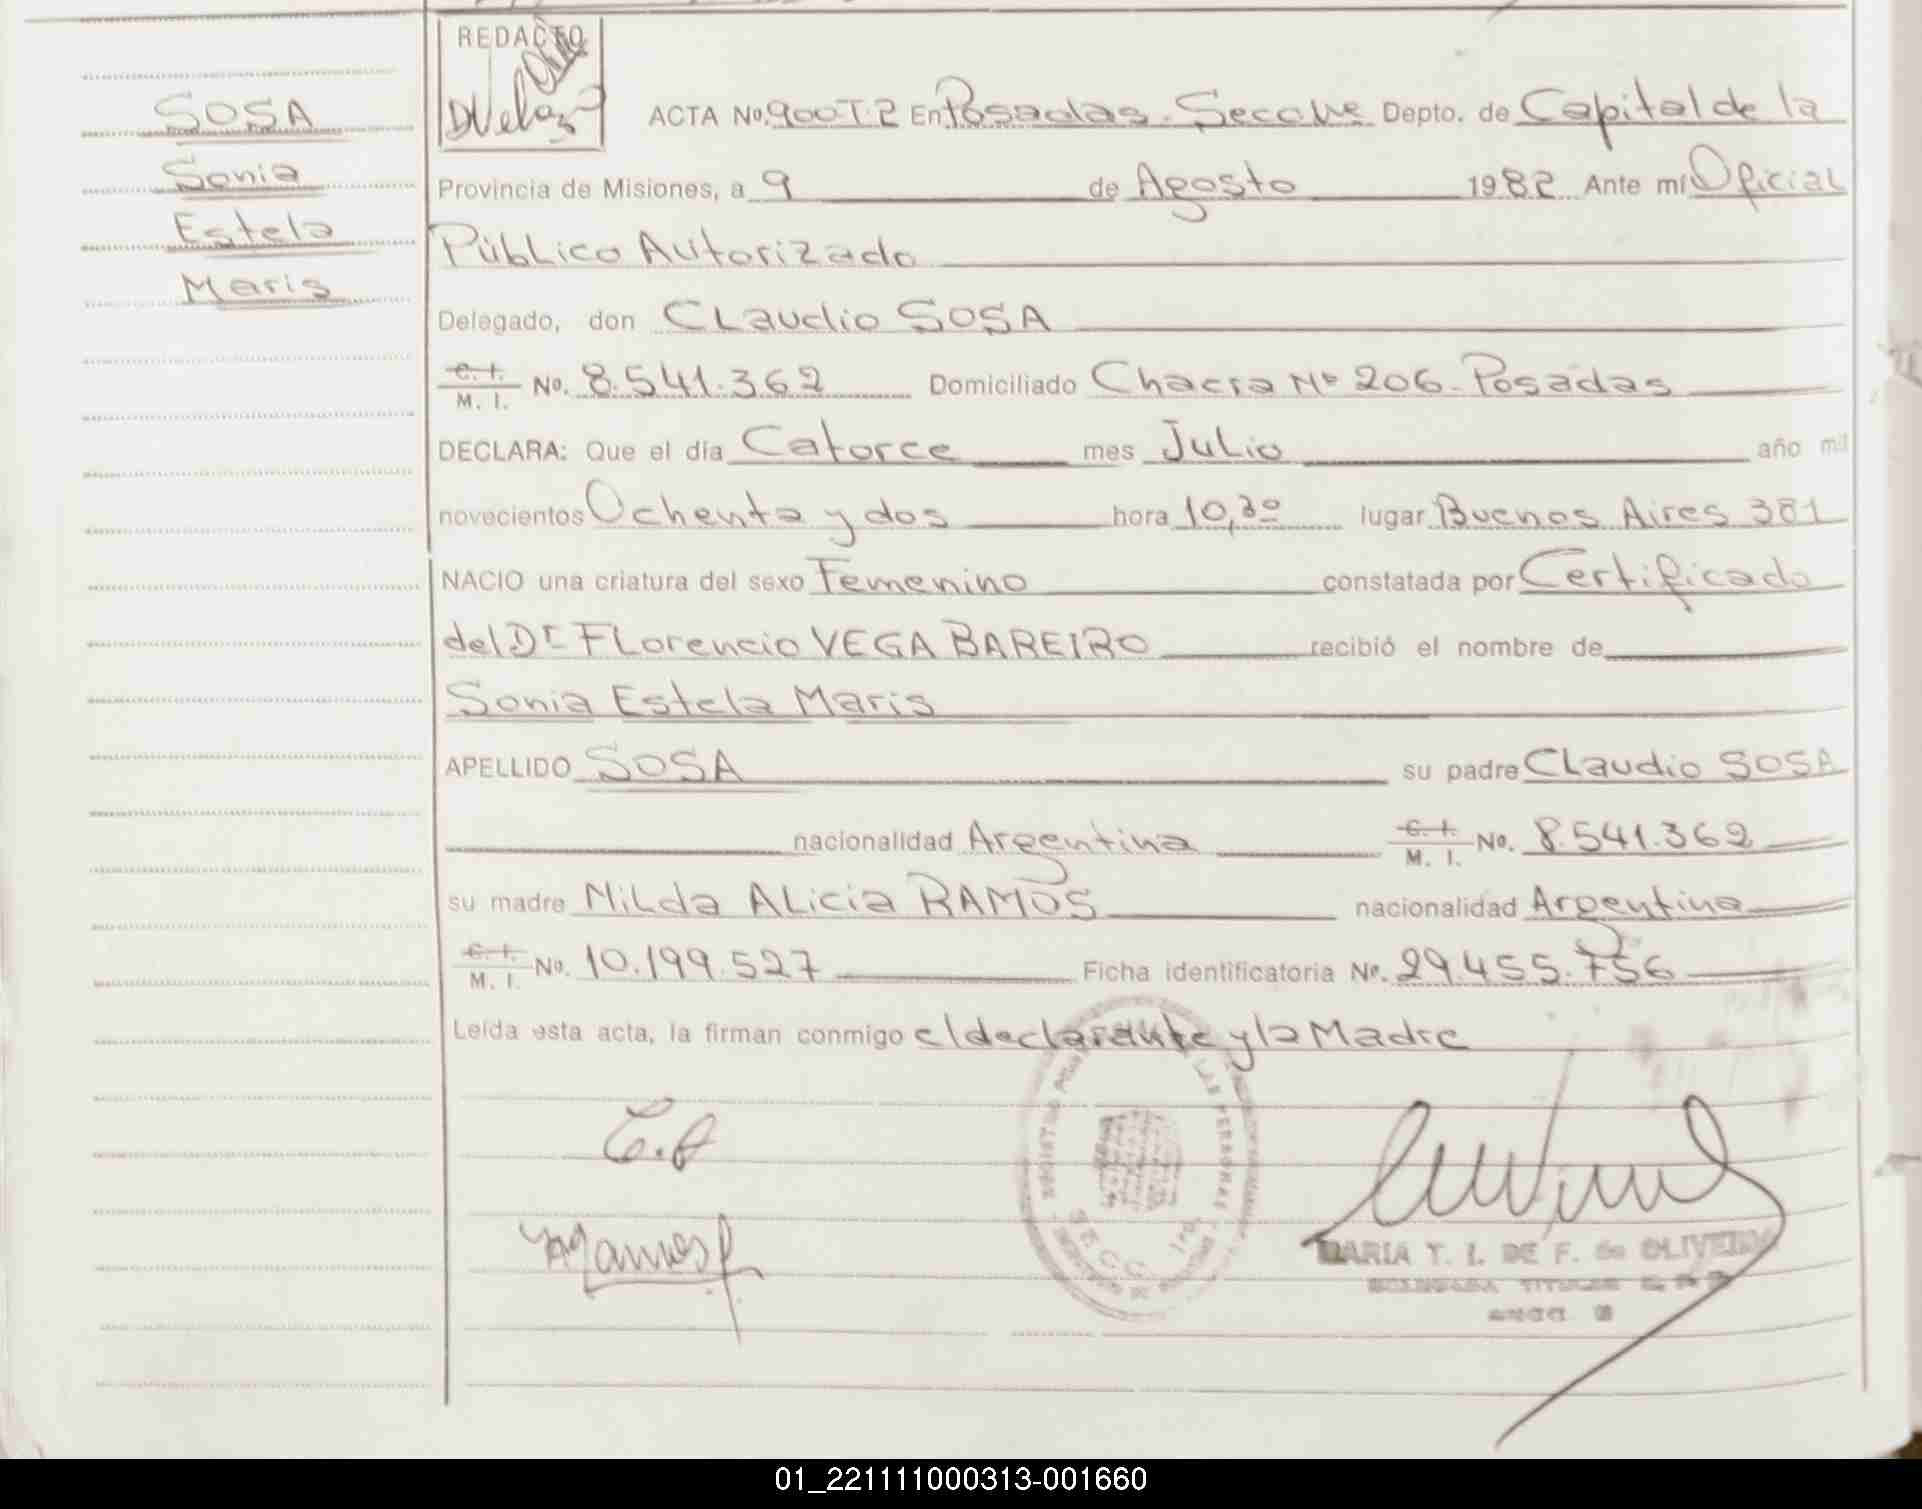 REDACTO
SOSA
Sonia
Estela
Maris
ACTA No. 900T.2 En Posadas. Depto. de Capital de la
Provincia de Misiones, a 9 de Agosto 1982 Ante mí Oficial
Público Autorizado
Delegado, don Claudio SOSA
C. I.
M. I. No. 8.541.362 Domiciliado Chacra Nº 206. Posadas
DECLARA: Que el día Catorce mes Julio año mil
novecientos Ochenta y dos hora 10,30 lugar Buenos Aires 381
NACIO una criatura del sexo Femenino constatada por Certificado
del Dr Florencio VEGA BAREIRO recibió el nombre de
Sonia Estela Maris
APELLIDO SOSA su padre Claudio SOSA
nacionalidad Argentina C. I.
M. I. No. 8.541.362
su madre Milda Alicia RAMOS nacionalidad Argentina
C. I.
M. I. No. 10.199.527 Ficha identificatoria Nº. 29.455.756
Leída esta acta, la firman conmigo el declarante y la Madre
MARIA T. I. DE F. de OLIVEIRA
01_221111000313-001660